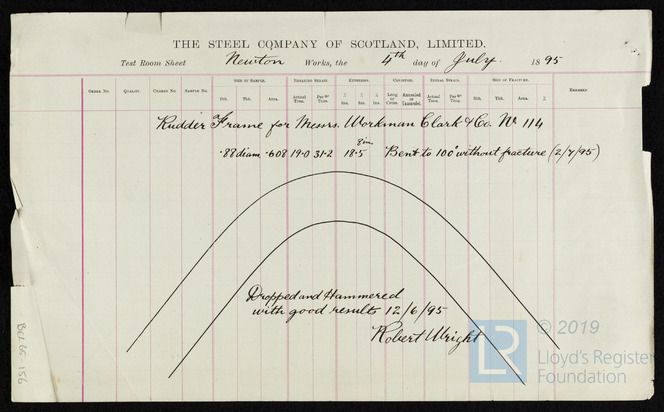 THE STEEL COMPANY OF SCOTLAND, LIMITED.
Test Room Sheet Newton Works, the 4th day of July 1895
SIZE OF SAMPLE. BREAKING STRAIN. EXTENSION. CONDITION. INITIAL STRAIN. SIZE OF FRACTURE.
ORDER No. QUALITY. CHARGE No. SAMPLE No. Bth. Thk. Area. Actual Tons. Per ☐" Tons. Ins. Ins. Ins. Long or Cross. Annealed or Unanneald. Actual Tons. Per ☐" Tons. Bth. Thk. Area. REMARKS
Rudder Frame for Messrs. Workman Clark & Co. No 114
8 ins
.88 diam .608 19.0 31.2 18.5 Bent to 100° without fracture (2/7/95)
Dropped and Hammered
with good results 12/6/95
Robert Wright
LR
© 2019
Lloyd's Register
Foundation